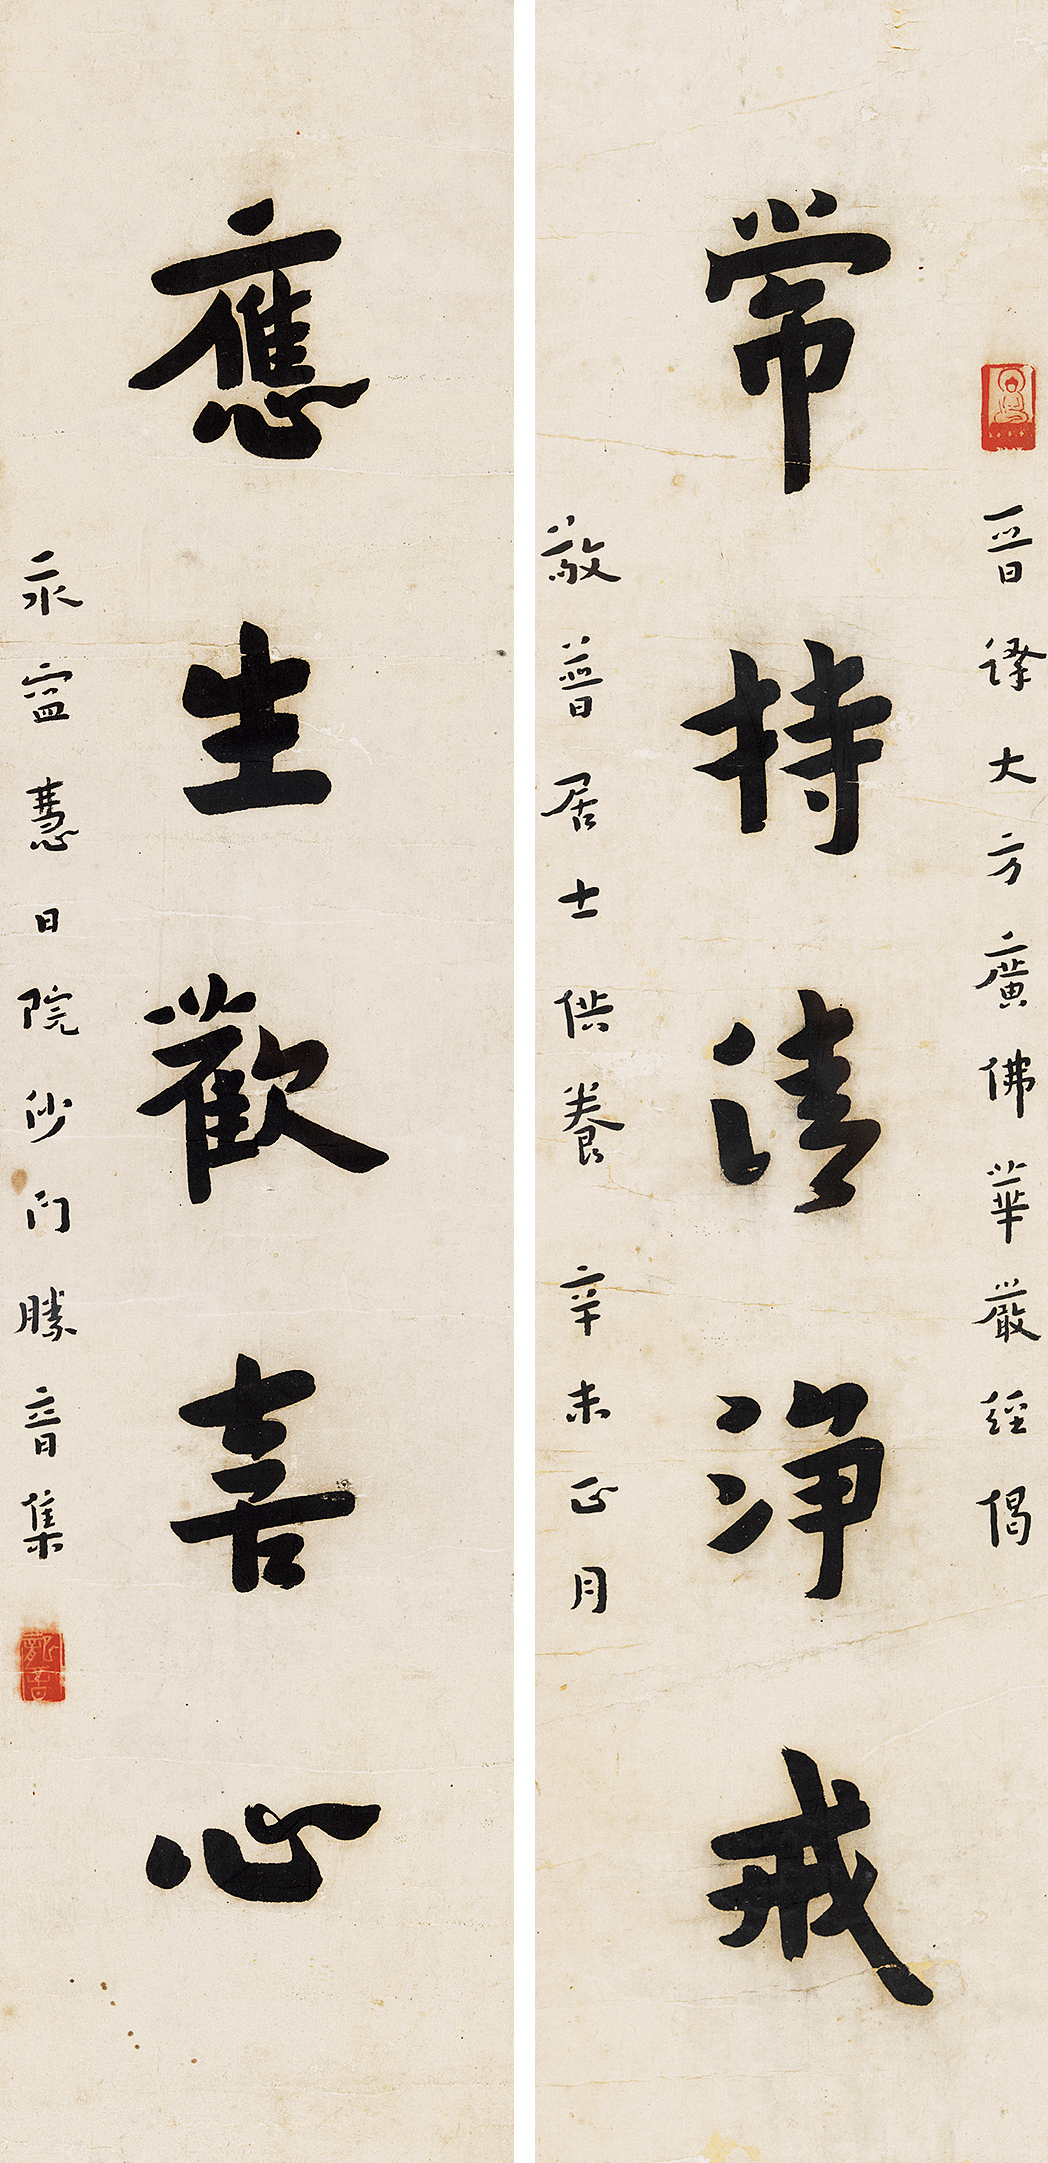 晉譯大方廣佛華嚴經偈
常持清淨戒
敬普居士供養 辛未正月
應生歡喜心
永寍慧日院沙門勝音集